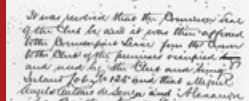 It was resolved that the Common Seal
of the Club be and it was then affixed
to the Counterpart Lease from the Crown
to the Club of the premises occupied
and used by the Club and being
Inland Lot No 125 and that Major
Angelo Antonio de Souza and Alexander